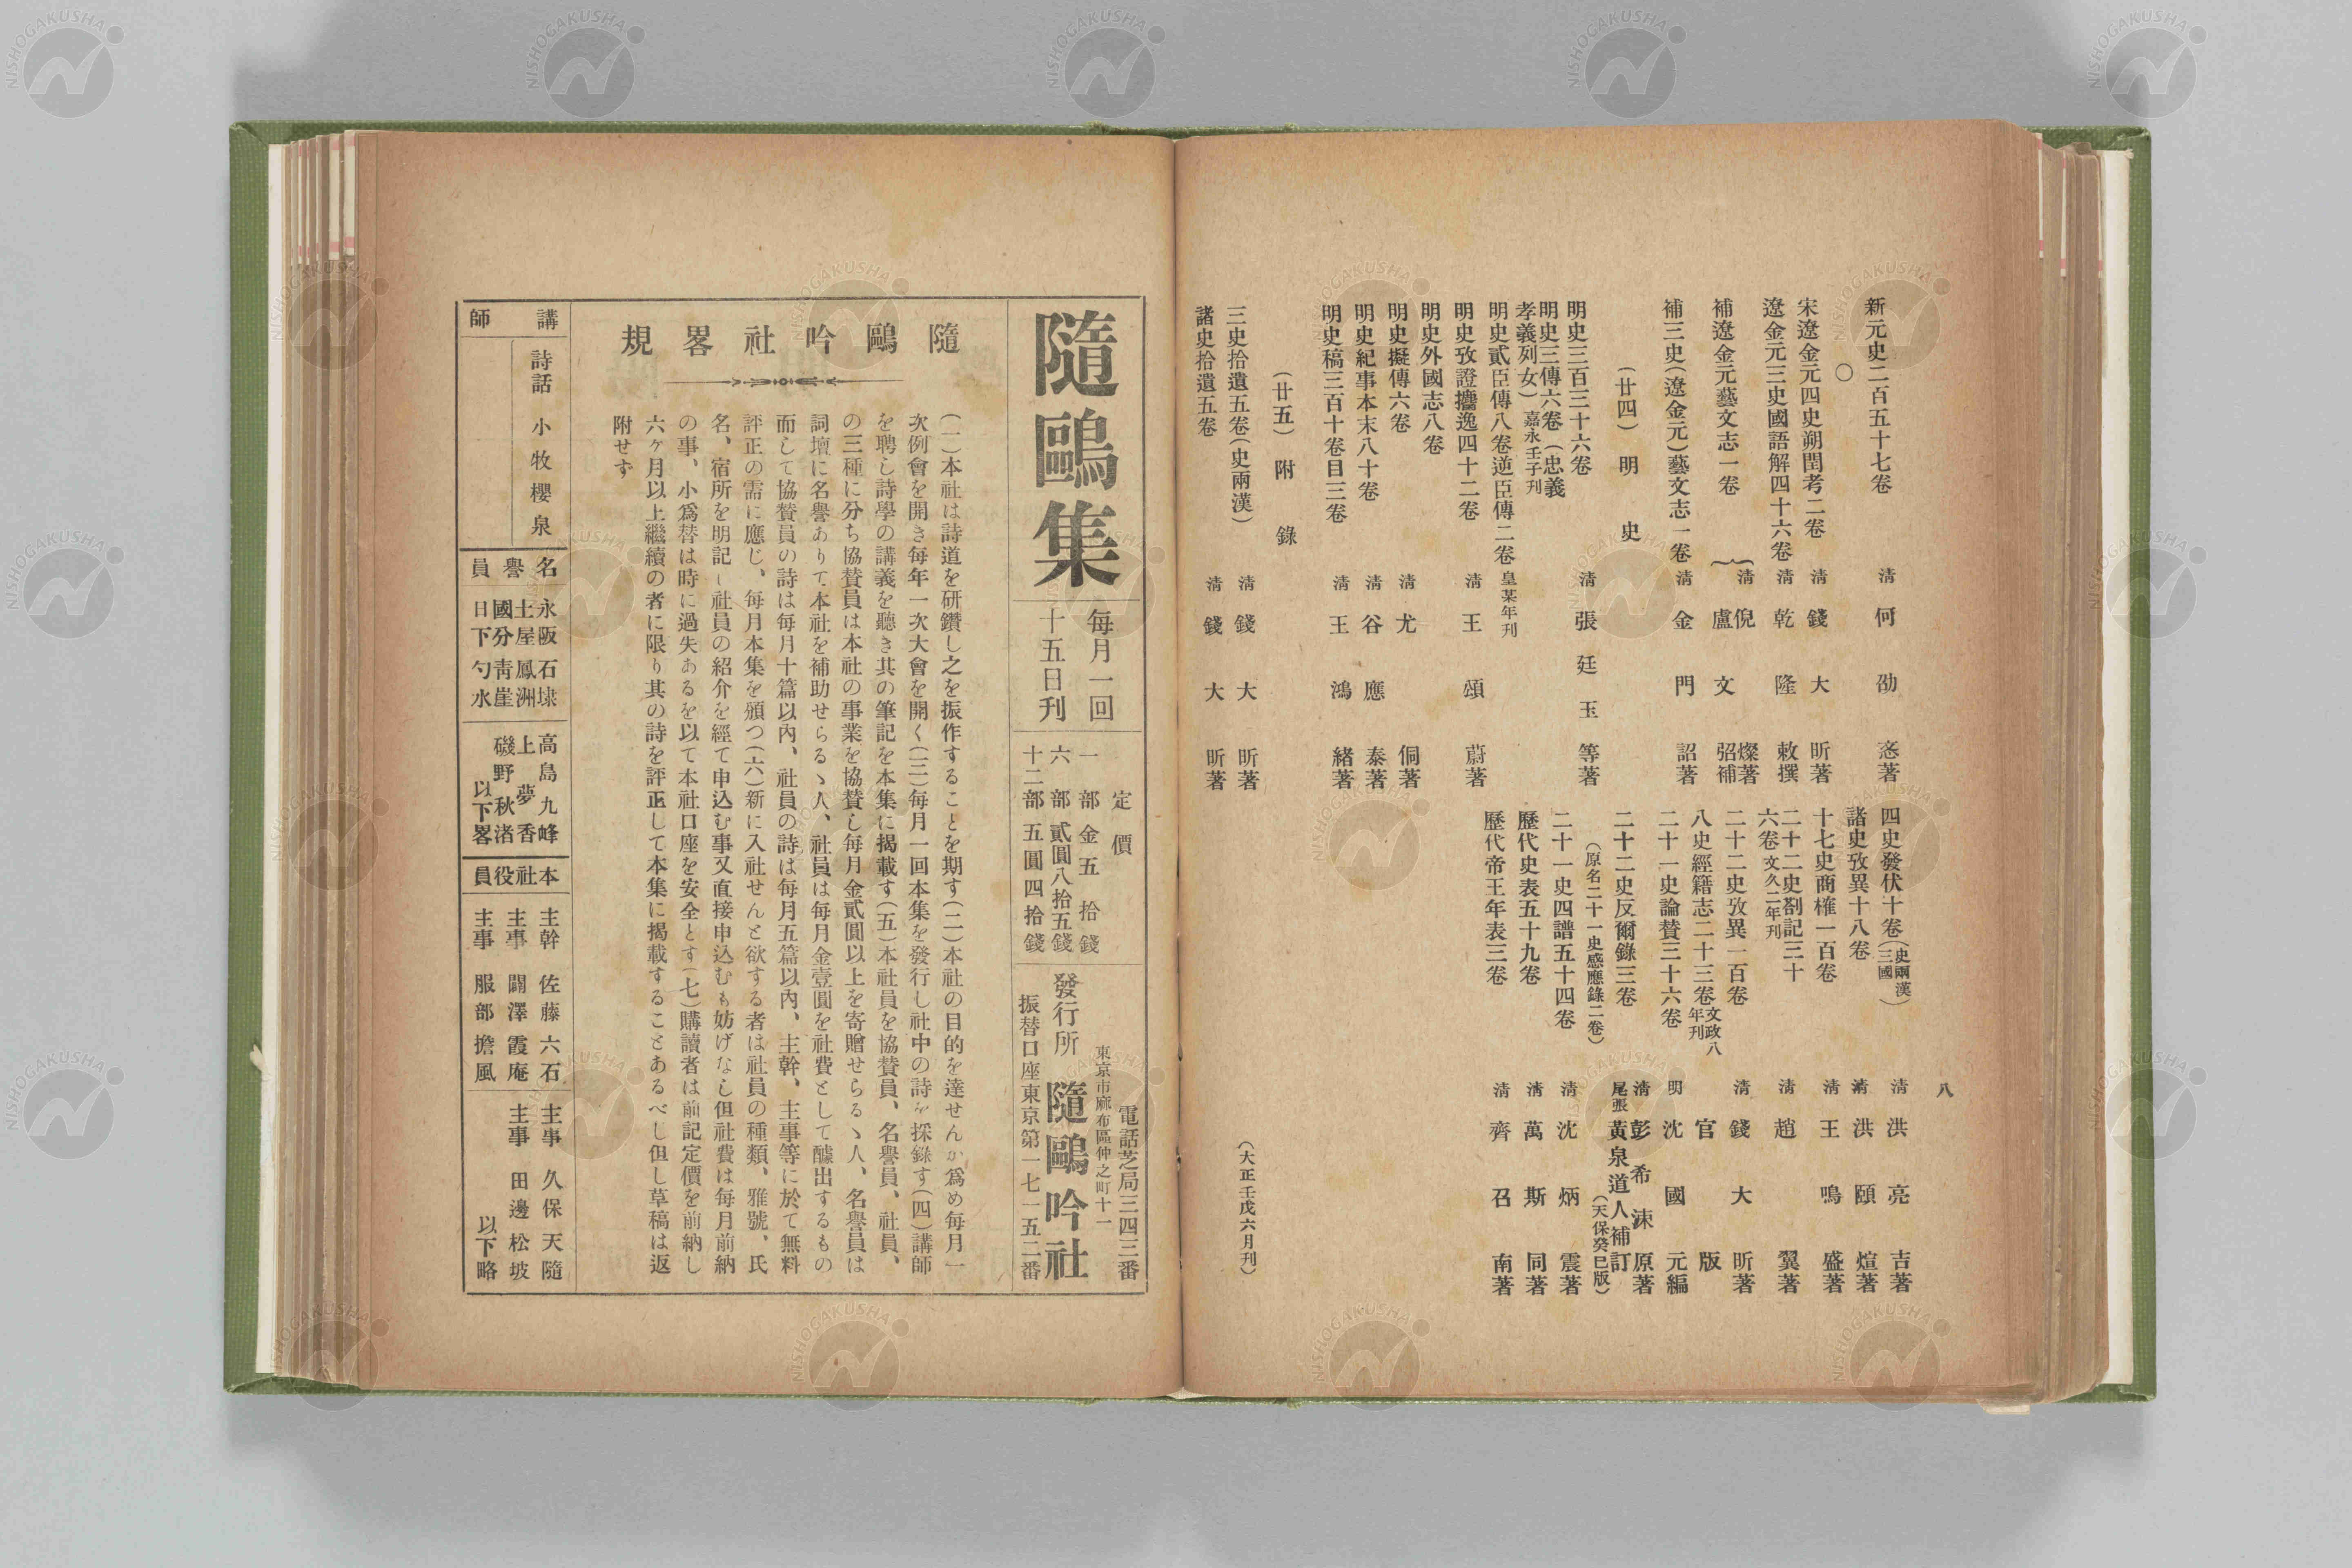 八
新元史二百五十七卷　清　何劭忞著
○
宋遼金元四史朔閏考二卷　清　錢大昕著
遼金元三史國語解四十六卷　清　乾隆敕撰
補遼金元藝文志一卷　清　倪燦著　盧文弨補
補三史（遼金元）藝文志一卷　清　金門詔著
（廿四）明史
明史三百三十六卷　清　張廷玉等著
明史三傳六卷（忠義孝義列女）嘉永壬子刊
明史貳臣傳八卷逆臣傳二卷　皇某年刊
明史攷證攟逸四十二卷　清　王頌蔚著
明史外國志八卷
明史擬傳六卷　清　尤侗著
明史紀事本末八十卷　清　谷應泰著
明史稿三百十卷目三卷　清　王鴻緒著
（廿五）附錄
三史拾遺五卷（史兩漢）　清　錢大昕著
諸史拾遺五卷　清　錢大昕著
四史發伏十卷（史兩漢三國）　清　洪亮吉著
諸史攷異十八卷　清　洪頤煊著
十七史商榷一百卷　清　王鳴盛著
二十二史劄記三十六卷　文久二年刊　清　趙翼著
二十二史攷異一百卷　清　錢大昕著
八史經籍志二十三卷　文政八年刊　官版
二十一史論贊三十六卷　明　沈國元編
二十二史反爾錄三卷　清　彭希涑原著
（原名二十一史感應錄二卷）　尾張　黃泉道人補訂（天保癸巳版）
二十一史四譜五十四卷　清　沈炳震著
歷代史表五十九卷　清　萬斯同著
歷代帝王年表三卷　清　齊召南著
（大正壬戌六月刊）
隨鷗集
每月一回
十五日刊
定價
一部金五拾錢
六部貳圓八拾五錢
十二部五圓四拾錢
電話芝局三四三番
東京市麻布區仲之町十一
發行所　隨鷗吟社
振替口座東京第一七一五二番
隨鷗吟社畧規
（一）本社は詩道を研鑽し之を振作することを期す（二）本社の目的を達せんか爲め每月一
次例會を開き每年一次大會を開く（三）每月一回本集を發行し社中の詩を採錄す（四）講師
を聘し詩學の講義を聽き其の筆記を本集に揭載す（五）本社員を協贊員、名譽員、社員、
の三種に分ち協贊員は本社の事業を協贊し每月金貳圓以上を寄贈せらるゝ人、名譽員は
詞壇に名譽ありて本社を補助せらるゝ人、社員は每月金壹圓を社費として醵出するもの
而して協贊員の詩は每月十篇以內、社員の詩は每月五篇以內、主幹、主事等に於て無料
評正の需に應じ、每月本集を頒つ（六）新に入社せんと欲する者は社員の種類、雅號、氏
名、宿所を明記し社員の紹介を經て申込む事又直接申込むも妨げなし但社費は每月前納
の事、小爲替は時に過失あるを以て本社口座を安全とす（七）購讀者は前記定價を前納し
六ヶ月以上繼續の者に限り其の詩を評正して本集に揭載することあるべし但し草稿は返
附せず
講師
詩話　小牧櫻泉
名譽員
永阪石埭
土屋鳳洲
國分靑崖
日下勺水
高島九峰
上夢香
磯野秋渚
以下畧
本社役員
主幹　佐藤六石
主事　關澤霞庵
主事　服部擔風
主事　久保天隨
主事　田邊松坡
以下略
NISHOGAKUSHA